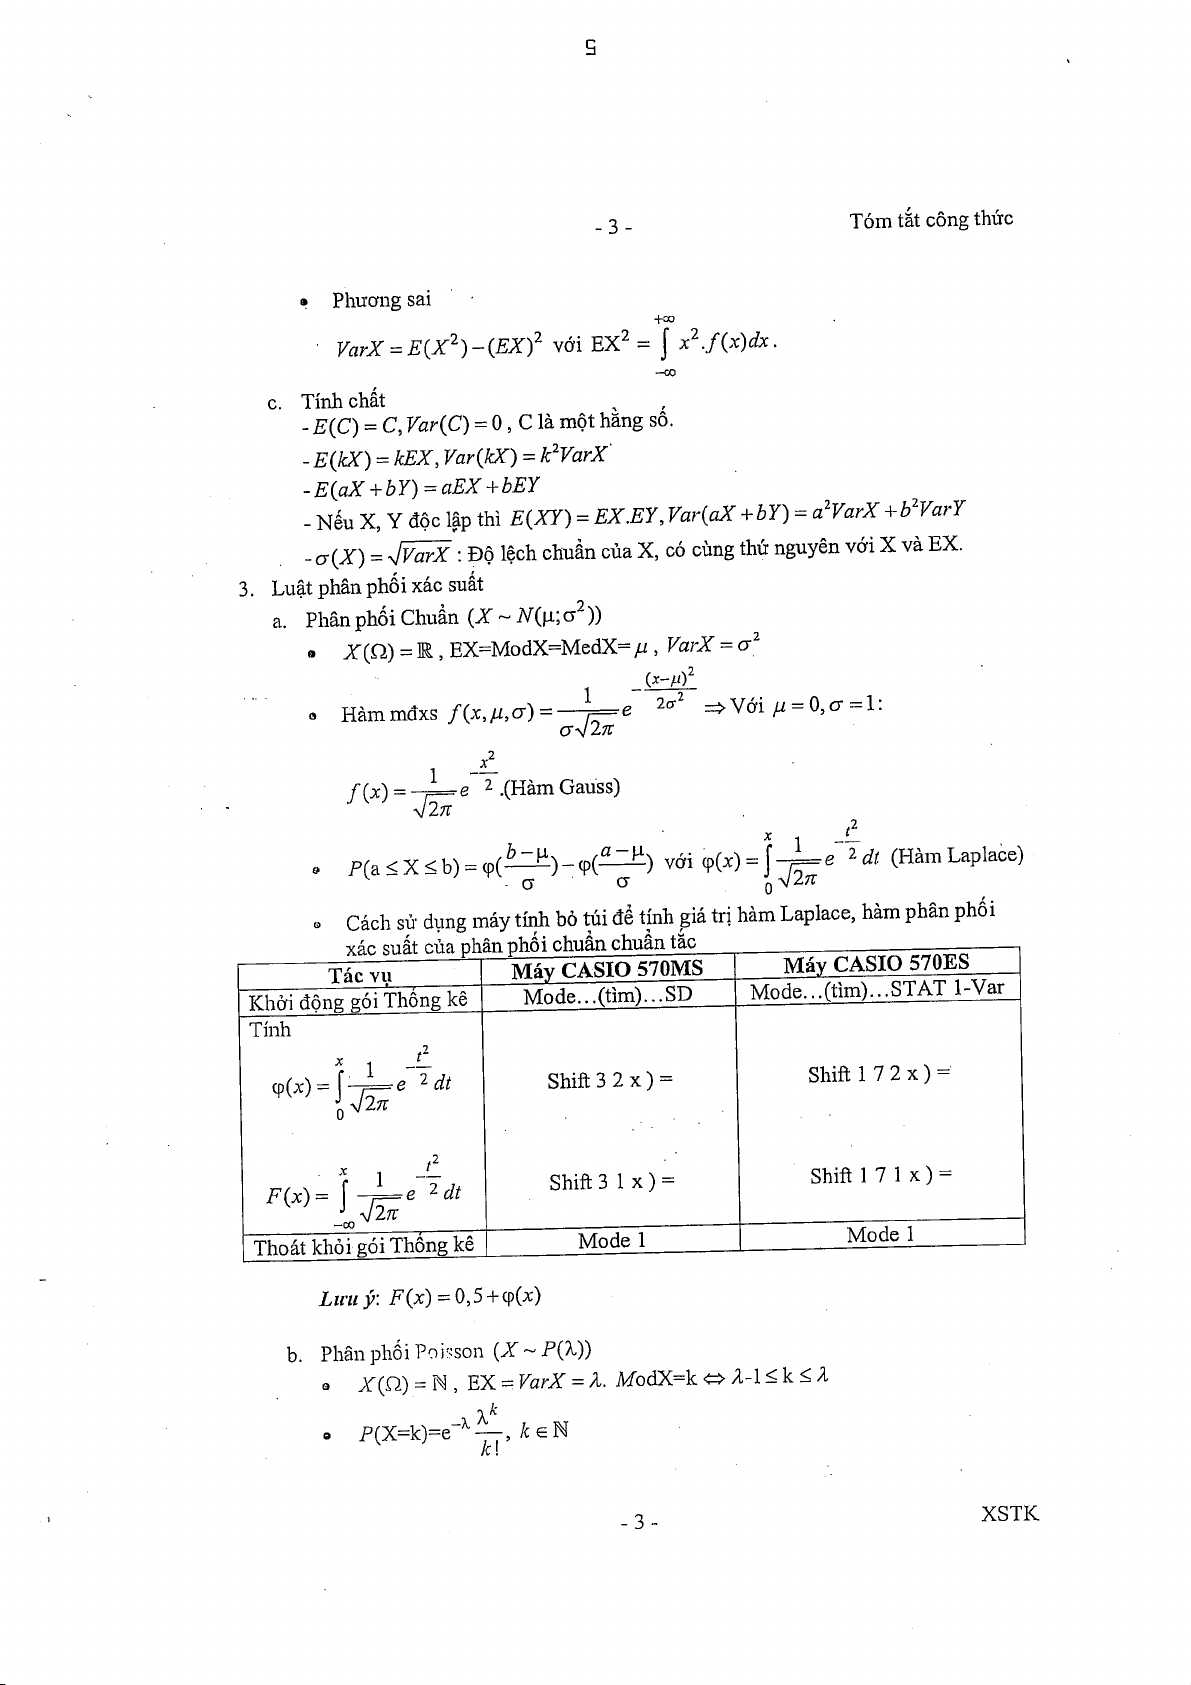 5
- 3 - Tóm tắt công thức
• Phương sai
VarX = E(X²) – (EX)² với EX² = ∫_{–∞}^{+∞} x².f(x)dx.
c. Tính chất
- E(C) = C, Var(C) = 0 , C là một hằng số.
- E(kX) = kEX, Var(kX) = k²VarX
- E(aX + bY) = aEX + bEY
- Nếu X, Y độc lập thì E(XY) = EX.EY, Var(aX + bY) = a²VarX + b²VarY
- σ(X) = √VarX : Độ lệch chuẩn của X, có cùng thứ nguyên với X và EX.
3. Luật phân phối xác suất
a. Phân phối Chuẩn (X ~ N(μ;σ²))
• X(Ω) = ℝ , EX=ModX=MedX= μ , VarX = σ²
• Hàm mđxs f(x,μ,σ) = \frac{1}{σ√2π} e^{-\frac{(x–μ)²}{2σ²}} ⇒ Với μ = 0, σ = 1:
f(x) = \frac{1}{√2π} e^{-\frac{x²}{2}} .(Hàm Gauss)
• P(a ≤ X ≤ b) = φ(\frac{b – μ}{σ}) – φ(\frac{a – μ}{σ}) với φ(x) = ∫_{0}^{x} \frac{1}{√2π} e^{-\frac{t²}{2}} dt (Hàm Laplace)
• Cách sử dụng máy tính bỏ túi để tính giá trị hàm Laplace, hàm phân phối
xác suất của phân phối chuẩn chuẩn tắc
Tác vụ Máy CASIO 570MS Máy CASIO 570ES
Khởi động gói Thống kê Mode...(tìm)...SD Mode...(tìm)...STAT 1-Var
Tính
φ(x) = ∫_{0}^{x} \frac{1}{√2π} e^{-\frac{t²}{2}} dt Shift 3 2 x ) = Shift 1 7 2 x ) =
F(x) = ∫_{–∞}^{x} \frac{1}{√2π} e^{-\frac{t²}{2}} dt Shift 3 1 x ) = Shift 1 7 1 x ) =
Thoát khỏi gói Thống kê Mode 1 Mode 1
Lưu ý: F(x) = 0,5 + φ(x)
b. Phân phối Poisson (X ~ P(λ))
• X(Ω) = ℕ , EX = VarX = λ. ModX=k ⇔ λ-1 ≤ k ≤ λ
• P(X=k)=e^{–λ} \frac{λ^k}{k!}, k ∈ ℕ
- 3 - XSTK